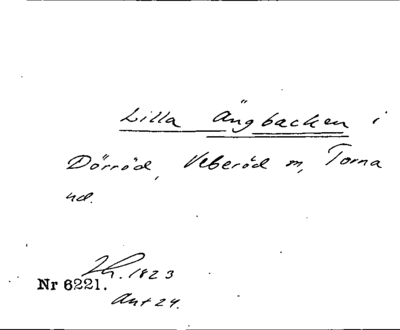 Lilla Ängbacken i
Dörröd, Veberöd sn, Torna
hd.
Lh. 1823
Nr 6221.
Ant 24.